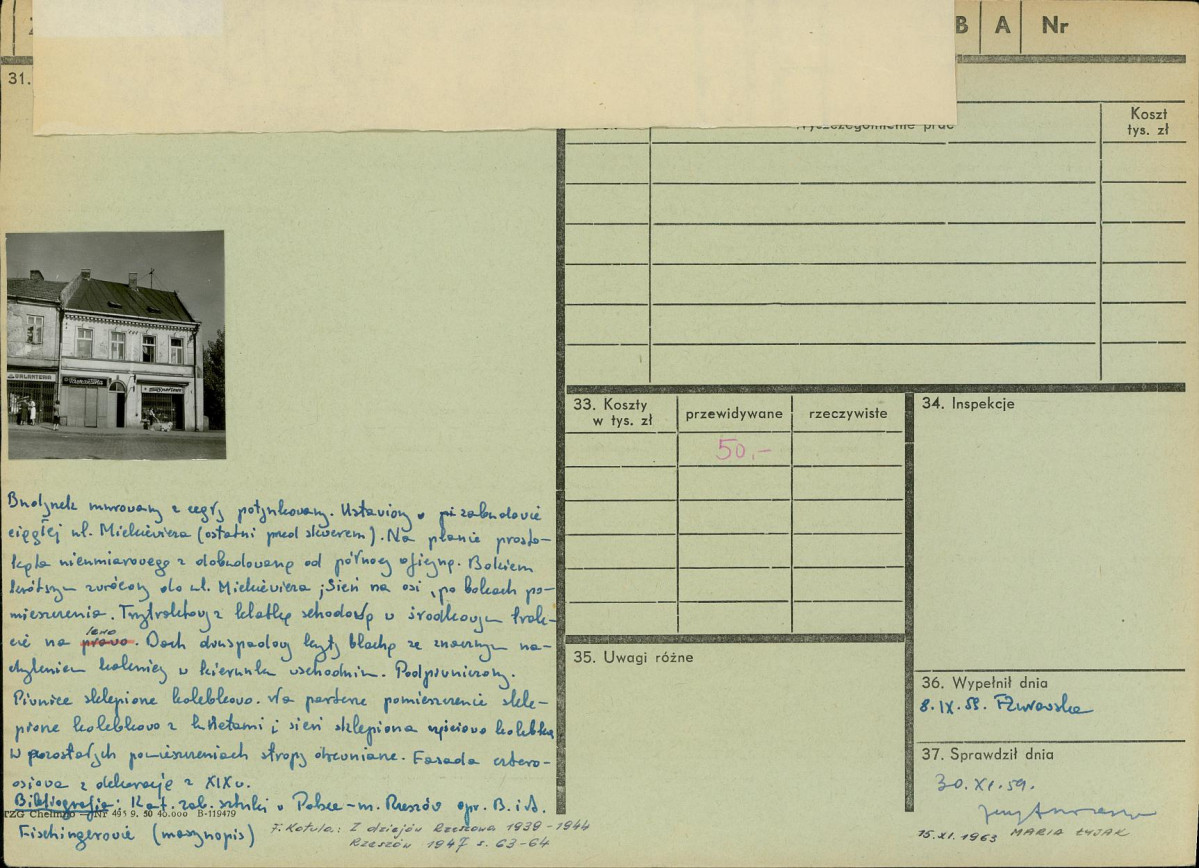 B A Nr
31.
Wyszczególnienie prac
Koszt
tys. zł
GALANTERIA
33. Koszty
w tys. zł
przewidywane
rzeczywiste
50.-
34. Inspekcje
Budynek murowany z cegły potynkowany. Ustawiony w pi zabudowie
ciągłej ul. Mickiewicza (ostatni przed skwerem). Na planie prosto-
kąta nieumiarowego z dobudowaną od północy oficyną. Bokiem
krótszym zwrócony do ul. Mickiewicza; Sień na osi, po bokach po-
mieszczenia. Trzytraktowy z klatką schodową w środkowym trak-
cie na prawo lewo. Dach dwuspadowy kryty blachą ze znacznym na-
chyleniem kalenicy w kierunku wschodnim. Podpiwniczony.
Piwnice sklepione kolebkowo. Na parterze pomieszczenie skle-
pione kolebkowo z lunetami; sień sklepiona kolebką
W pozostałych pomieszczeniach stropy drewniane. Fasada cztero-
osiowa z dekoracją z XIX w.
Bibliografia: Kat. zab. sztuki w Polsce - m. Rzeszów opr. B. i A.
Fischingerowie (maszynopis)
TZG Chełmno — Nr 495 9. 50 40.000 B-119479
F. Kotula: Z dziejów Rzeszowa 1939-1944
Rzeszów 1947 s. 63-64
35. Uwagi różne
36. Wypełnił dnia
8. IX. 59.
37. Sprawdził dnia
30. XI. 59.
15. XI. 1963 MARIA ŁYJAK